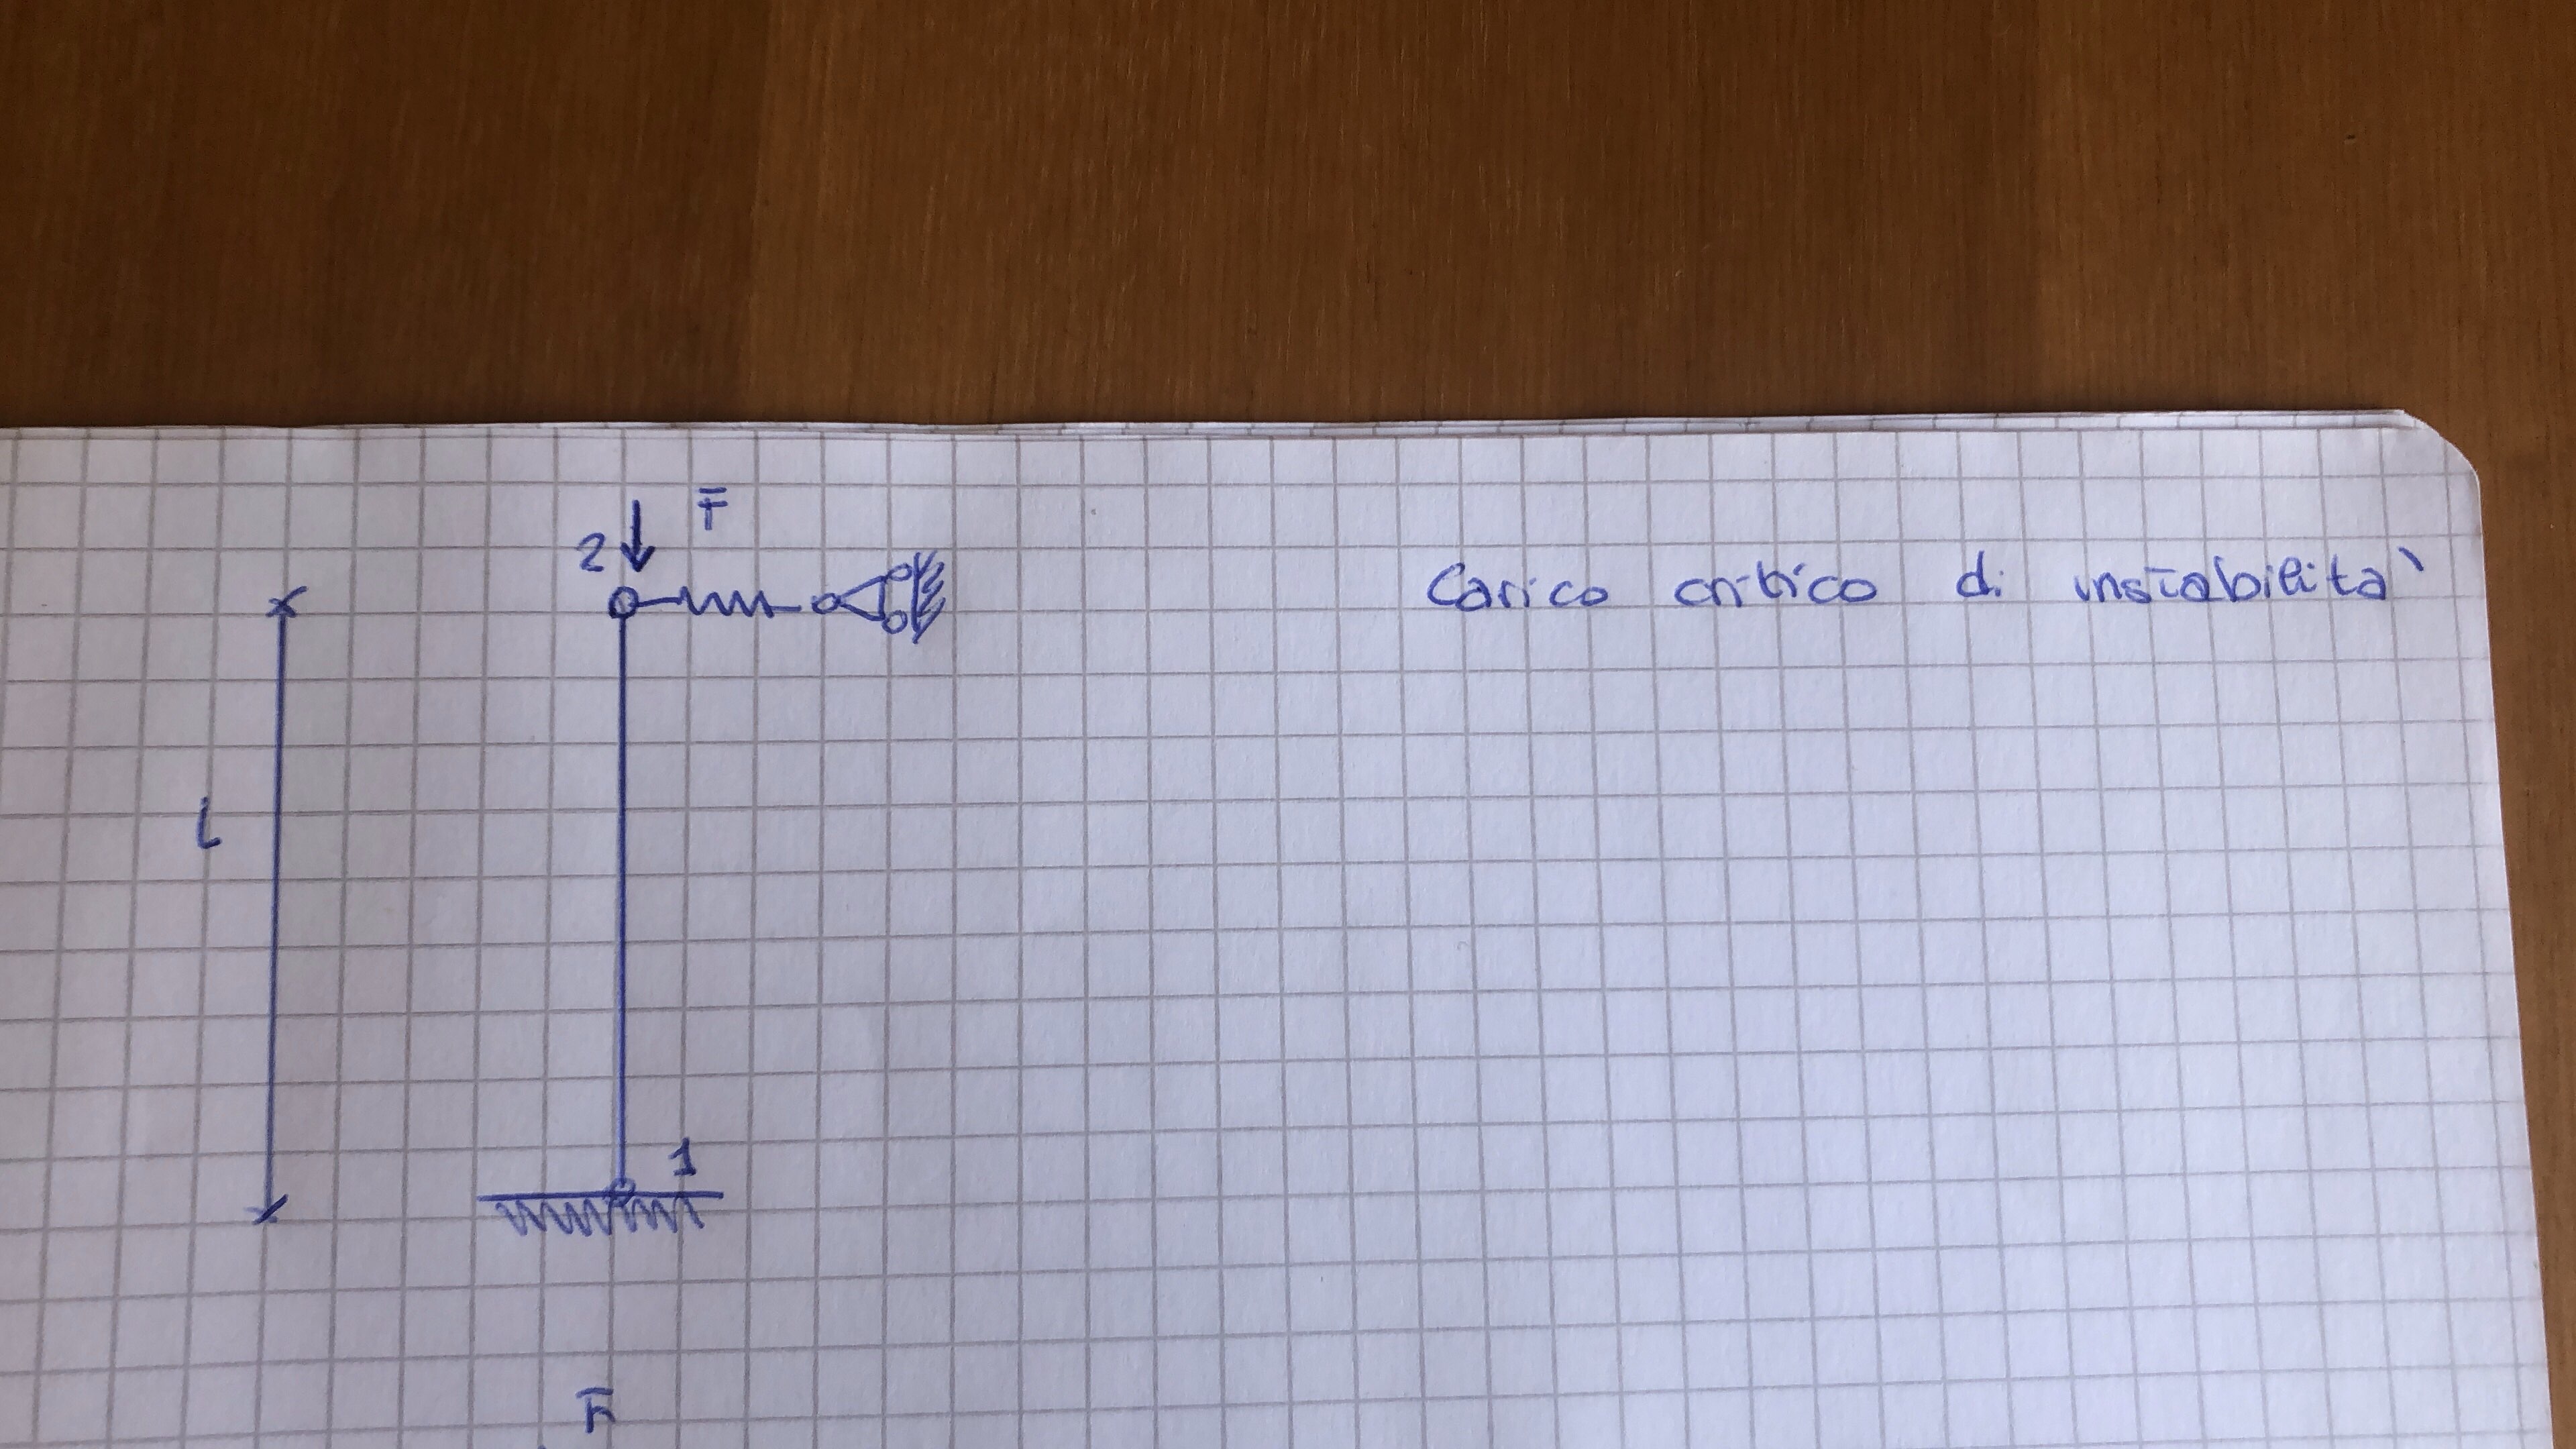 F
2
Carico critico di instabilità
l
1
F